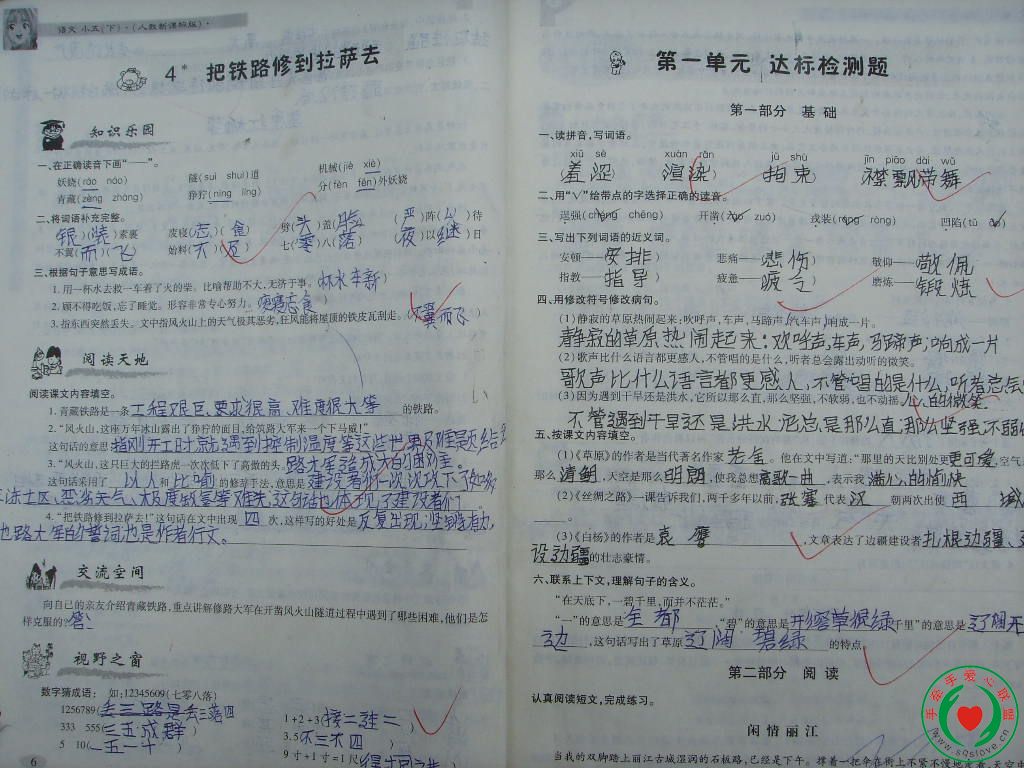 语文 小五(下)·(人教新课标版)·
4* 把铁路修到拉萨去
知识乐园
一、在正确读音下画“——”。
妖娆(ráo náo) 隧(suì shuì)道 机械(jiè xiè)
青藏(zàng zhàng) 狰狞(níng líng) 分(fèn fēn)外妖娆
二、将词语补充完整。
银(装)素裹 废寝(忘)(食) 劈(头)盖(脸) (严)阵(以)待
不翼(而)(飞) 始料(不)(及) 七(零)八(落) (夜)以(继)日
三、根据句子意思写成语。
1. 用一杯水去救一车着了火的柴。比喻帮助不大,无济于事。(杯水车薪)
2. 顾不得吃饭,忘了睡觉。形容非常专心努力。(废寝忘食)
3. 指东西突然丢失。文中指风火山上的天气极其恶劣,狂风能将屋顶的铁皮瓦刮走。(不翼而飞)
阅读天地
阅读课文内容填空。
1. 青藏铁路是一条工程艰巨、要求很高、难度很大等的铁路。
2. “风火山,这座万年冰山露出了狰狞的面目,给筑路大军来一个下马威!”
这句话的意思指刚开工时就遇到控制温度等这些世界
3. “风火山,这只巨大的拦路虎一次次低下了高傲的头。
这句话采用了 以人和比喻 的修辞手法,意思是建设者们一次次攻下
4. “把铁路修到拉萨去!”这句话在文中出现 四 次,这样写的好处是反复出现,
也路大军的誓词也是作者行文。
交流空间
向自己的亲友介绍青藏铁路,重点讲解修路大军在开凿风火山隧道过程中遇到了哪些困难,他们是怎
样克服的?答:
视野之窗
数字猜成语: 如:12345609(七零八落)
1256789(丢三落四
333 555(三五成群) 1+2+3(接二连三
5 10(一五一十) 3.5(不三不四)
9寸+1寸=1尺(得寸进尺
6
第一单元 达标检测题
第一部分 基础
一、读拼音,写词语。
xiū sè xuàn rǎn jū shù jīn piāo dài wǔ
羞涩 渲染 拘束 襟飘带舞
二、用“√”给带点的字选择正确的读音。
逞强(chěng chěng) 开凿(záo zuó) 戎装(róng ròng) 凹陷(tū āo)
三、写出下列词语的近义词。
安顿——安排) 悲痛—(悲伤) 敬仰—(敬佩
指教—(指导) 疲惫—(疲气) 磨炼—(锻炼
四、用修改符号修改病句。
(1)静寂的草原热闹起来:欢呼声,车声,马蹄声,汽车声,响成一片。
静寂的草原热闹起来:欢呼声,车声,马蹄声;响成一片
(2)歌声比什么语言都更感人,不管唱的是什么,听者总会露出动听的微笑。
歌声比什么语言都更感人,不管唱的是什么,听者总
(3)因为遇到干旱还是洪水,它所以那么直,那么坚强,不软弱,也不动摇。心的微笑.
不管遇到干旱还是洪水,它总是那么直,那么坚强,不
五、按课文内容填空。
(1)《草原》的作者是当代著名作家 老舍 。他在文中写道:“那里的天比别处更可爱,空气
那么清鲜,天空是那么明朗,使我总想高歌一曲,表示我 满心的愉快
(2)《丝绸之路》一课告诉我们,两千多年以前,张骞 代表 汉 朝两次出使 西 域
。
(3)《白杨》的作者是 袁鹰 ,文章表达了边疆建设者扎根边疆、
设边疆的壮志豪情。
六、联系上下文,理解句子的含义。
“在天底下,一碧千里,而并不茫茫。”
“一”的意思是全都 ,“碧”的意思是形容草很绿千里”的意思是辽阔无
边 ,这句话写出了草原 辽阔 碧绿 的特点。
第二部分 阅读
认真阅读短文,完成练习。
闲情丽江
当我的双脚踏上丽江古城湿润的石板路,已经是下午。撑着一把伞在街上不紧不慢地
手牵手爱心联盟
www.sqslove.cn